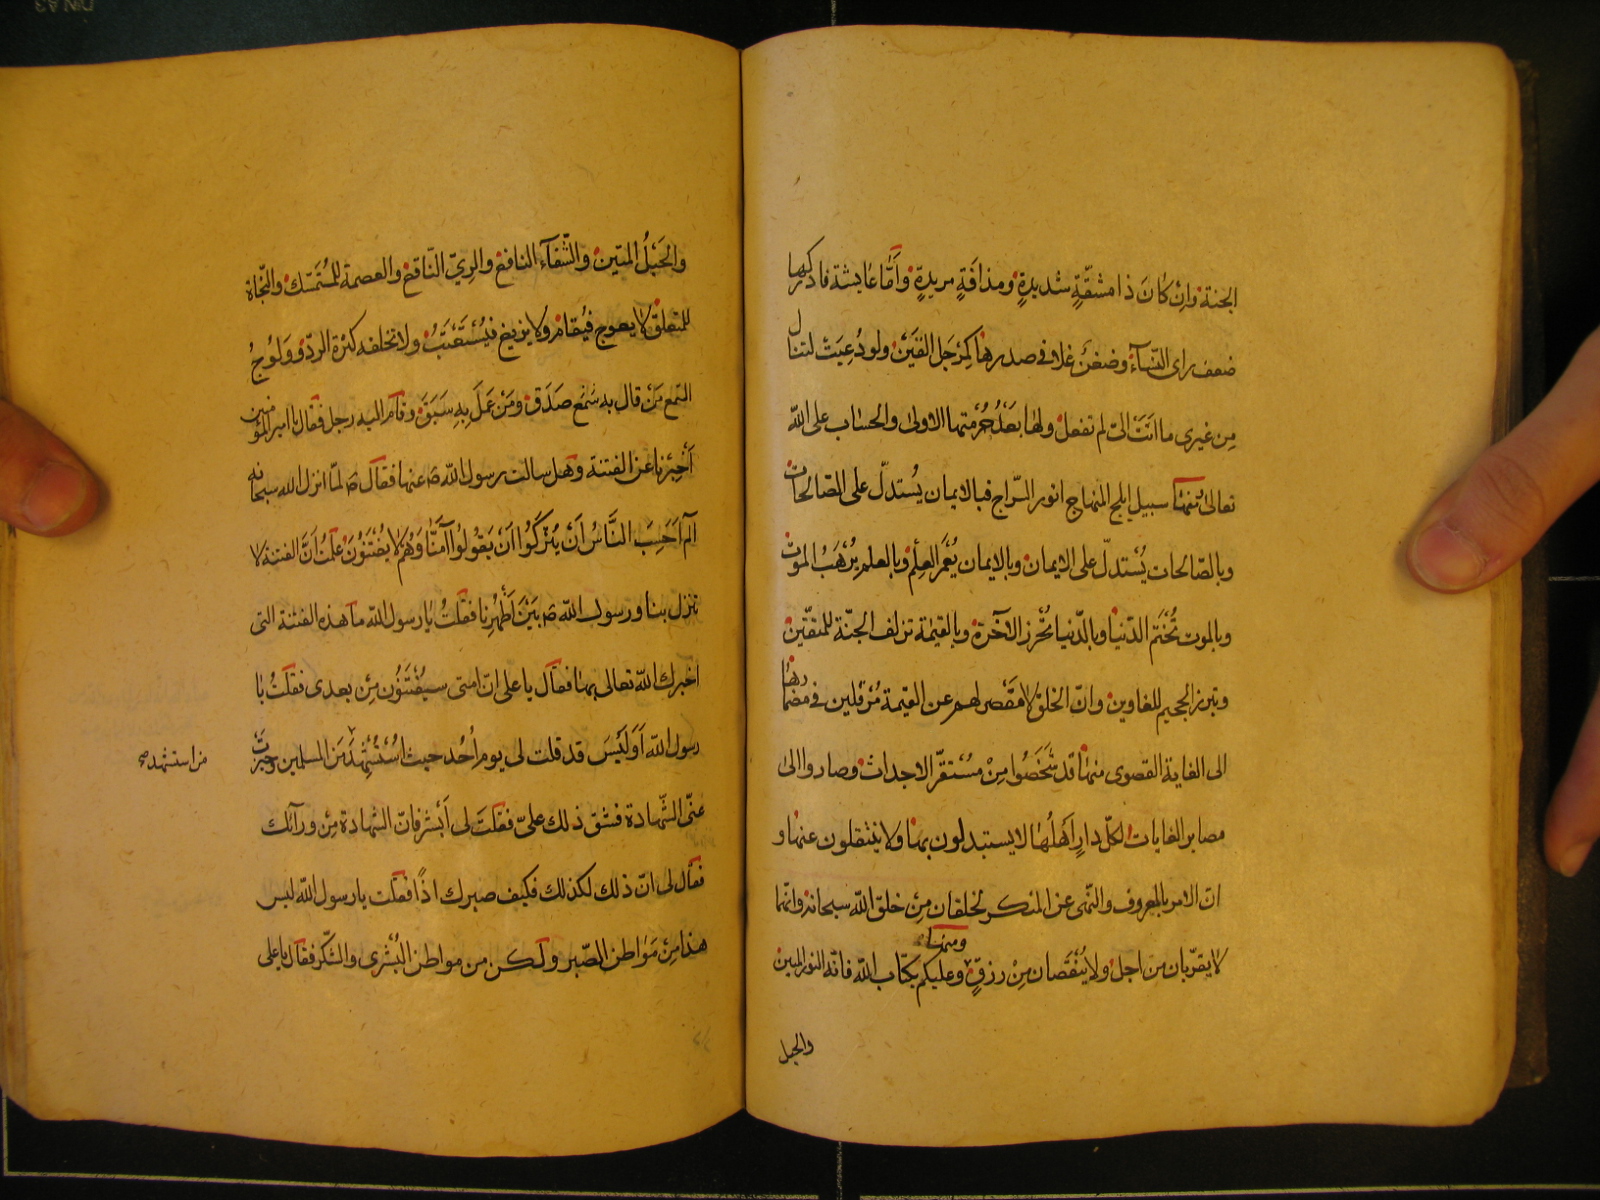 الجنة وان كانَ ذا مشقّةٍ شديدةٍ ومذاقةٍ مريرةٍ وَامّا عايشة فادركها
ضعف راى النّسآء وضغنٌ غلا فى صدرها كمِرْجَل القَيْن ولو دُعِيَتْ لتنال
مِن غيرى ما اتَتْ الىّ لم تفعل ولها بَعْدُ حُرْمتها الاولى والحساب على الله
تعالى منها سبيل ابلج المنهاج انور السّراج فبالايمان يُستدلّ على الصّالحات
وبالصّالحات يُستدلّ على الايمان وبالايمان يُعْمَر العِلْم وبالعلم يُرْهَبُ الموت
وبالموت تُخْتَم الدّنيا وبالدّنيا تُحْرَز الآخرة وبالقيٰمة تزلف الجنّة للمتّقين
وتبرز الجحيم للغاوين وانّ الخلق لا مَقْصر لهم عن القيمة مُرْقلين فى مضمارها
الى الغاية القصوى منها قد شَخَصُوا مِنْ مسْتقرّ الاجداث وصاروا الى
مصاير الغايات لكلّ دارٍ اَهْلُها لا يستبدلون بها ولا ينتقلون عنها و
انّ الامر بالمعروف والنّهى عن المنكر لخلقان مِنْ خلق الله سبحانه وانّهما
لا يقرّبان من اجل ولا يَنْقُصان مِنْ رزقٍ وعليكم بكتاب الله فانّه النور المبين
ومنها
والحبل
والحَبْلُ المتين والشّفآء النافع والرِىّ النّاقع والعصمة للمُتَمسّك والنّجاة
للمتعلّق لا يعوج فيُقام ولا يزيغ فيُسْتَعْتَبُ ولا تخلقه كثرة الردّ وَوَلُوجُ
السّمع مَنْ قال به صَدَق ومَنْ عَمِلَ بِهِ سَبَقَ وقام اليه رجل فقال يا امير المؤمنين
أخْبِرْنا عن الفتنة وهل سالت رسول الله ص عنها فقال ص لمّا انزل الله سبحانه
آلم اَحَسِبَ النَّاسُ اَنْ يُتْرَكُوا اَنْ يَقُولُوا آمَنّا وَهُمْ لا يُفْتَنُوْن عَلِمْتُ اَنَّ الفتنة لا
تنزل بنا ورسول الله ص بَيْنَ اَظْهُرِنا فقلتُ يا رسول الله ما هذه الفتنة التى
اخبرك الله تعالى بها فقال يا على انّ امتى سيُفْتَنُوْن مِنْ بعدى فقلتُ يا
رسول الله اَوَلَيْسَ قد قلت لى يوم اُحُد حيث اسْتُشْهِدَ مَن المسلمين وحيزتْ
من استشهد ص
عنّى الشّهادة فشق ذلك علىّ فقلتَ لى اَبْشِرْ فانّ الشهادة مِنْ ورآئك
فقال لى انّ ذلك لكذلك فكيف صبرك اذًا فقلت يا رسول الله ليس
هذا مِنْ مَوَاطن الصّبر ولكن من مواطن البُشْرى والشّكر فقال يا على